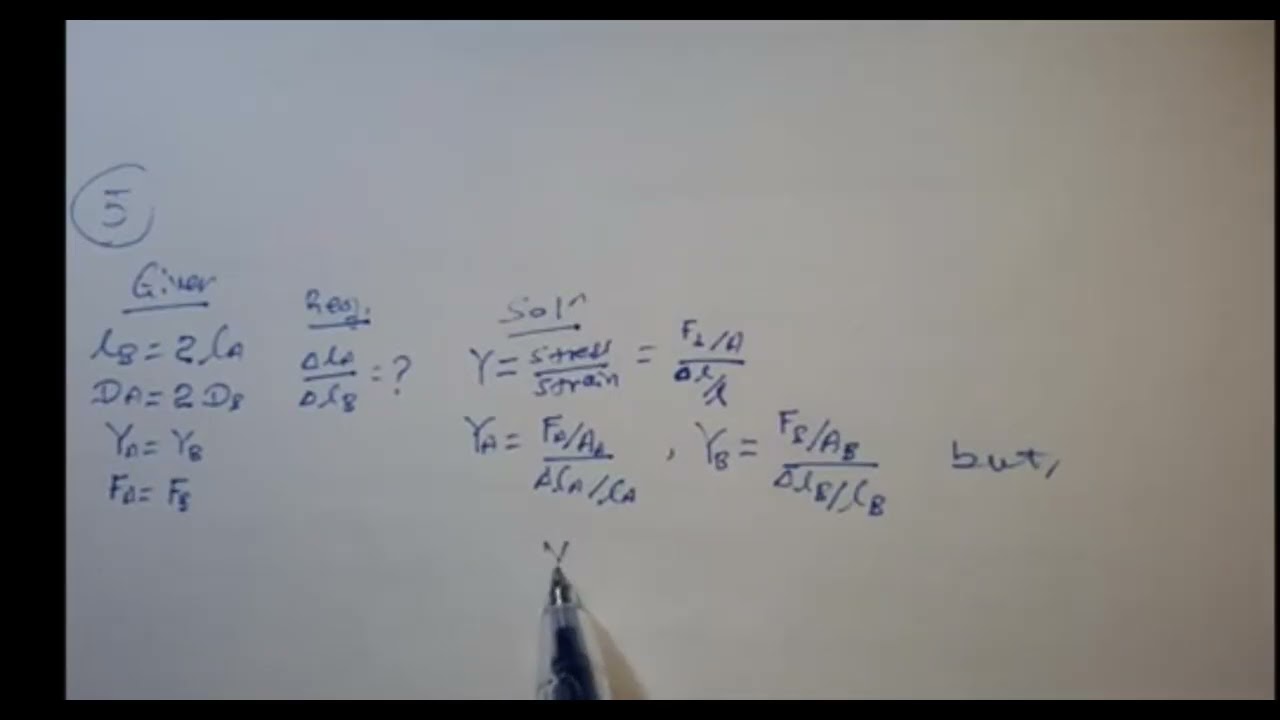 5
Given
Req.
Soln
l_B = 2 l_A
D_A = 2 D_B
Y_A = Y_B
F_A = F_B
Δl_A / Δl_B = ?
Y = stress / strain = (F⊥/A) / (Δl/l)
Y_A = (F_A/A_A) / (Δl_A/l_A) , Y_B = (F_B/A_B) / (Δl_B/l_B) but,
Y